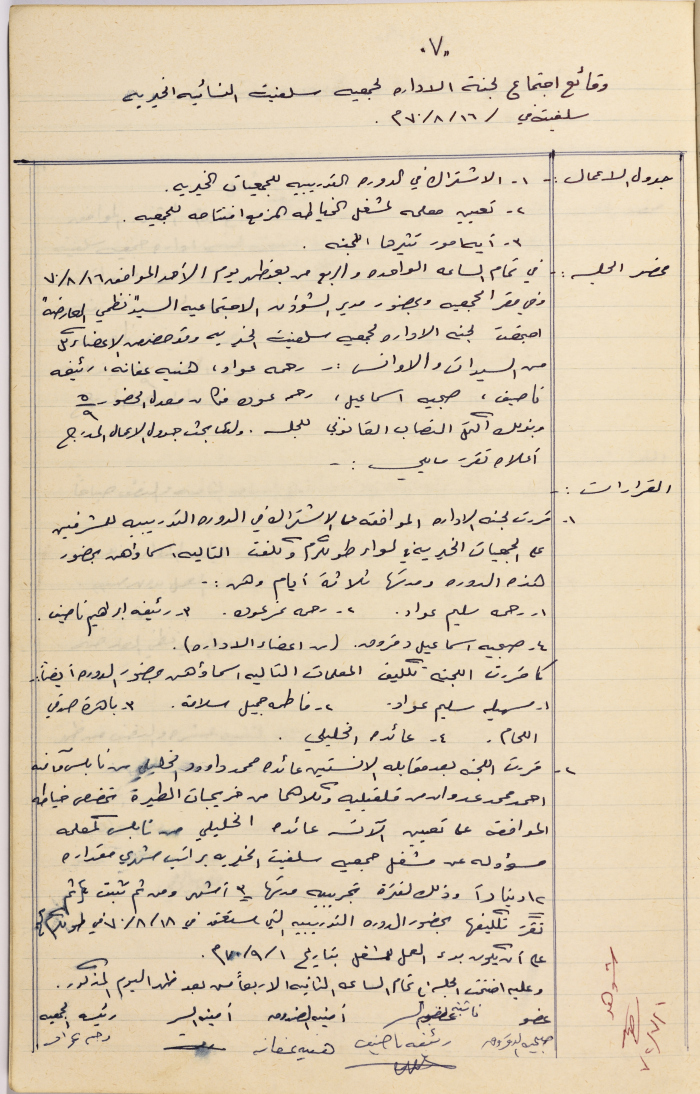 ٧٠
وقائع اجتماع لجنة الاداره لجمعيه سلفيت النسائيه الخيريه
سلفيت في ٧٠/٨/١٦م.
جدول الاعمال :- ١- الاشتراك في الدوره التدريبيه للجمعيات الخيريه.
٢- تعيين معلمه لمشغل الخياطه المزمع افتتاحه للجمعيه.
٣- أية امور تثيرها اللجنه.
محضر الجلسه :- في تمام الساعه الواحده والربع من بعد ظهر يوم الأحد الموافق ٧٠/٨/١٦
وفي مقر الجمعيه وبحضور مدير الشؤون الاجتماعيه السيد نظمي
اجتمعت لجنه الاداره لجمعيه سلفيت الخيريه وقد حضر من الاعضاء
من السيدات والاوانس :- رحمه عواد، هنيه عفانه، رئيفه
ناصيف، صبحيه اسماعيل، رحمه عوده فكان معدل الحضور ٥/٩
وبذلك اكتمل النصاب القانوني للجلسه. ولدى بحث جدول الاعمال المدرج
أعلاه تقرر مايلي :-
القرارات :-
١- قررت لجنه الاداره الموافقه على الاشتراك في الدوره التدريبيه للمشرفين
على الجمعيات الخيريه في لواء طولكرم وكلفت التاليه اسماؤهن بحضور
هذه الدوره ومدتها ثلاثة أيام وهن :-
١- رحمه سليم عواد. ٢- رحمه عوده. ٣- رئيفه ابراهيم ناصيف.
٤- صبحيه اسماعيل (من اعضاء الاداره).
كما قررت اللجنه تكليف المعلمات التاليه اسماؤهن بحضور الدوره أيضاً:-
١- سهيله سليم عواد. ٢- فاطمه جميل سلامة. ٣- باهرة صدقي
اللحام. ٤- عائده الخليلي.
٢- قررت اللجنه بعد مقابله الانستين عائده محمد داوود الخليلي من نابلس
احمد محمد عدوان من قلقيليه وكلاهما من خريجات الطيرة تخصص خياطه
الموافقه على تعيين الآنسه عائده الخليلي من نابلس كمعلمه
مسؤوله عن مشغل جمعيه سلفيت الخيريه براتب شهري مقداره
١٢ ديناراً وذلك لفترة تجريبيه مدتها ٣ أشهر ومن ثم تثبت
تقرر تكليفها بحضور الدوره التدريبيه التي ستعقد في ٧٠/٨/١٨ في طولكرم
على أن يكون بدء العمل للمشغل بتاريخ ٧٠/٩/١م.
وعليه اختتمت الجلسه في تمام الساعه الثانيه الا ربعاً من بعد ظهر اليوم المذكور.
عضو أمينة الصندوق أمينة السر رئيسه الجمعيه
رئيفه ناصيف هنيه عفانه رحمه عواد